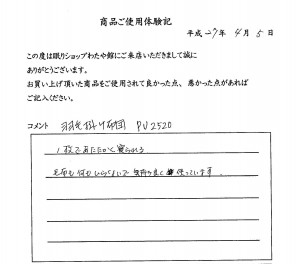 商品ご使用体験記
平成27年4月5日
この度は眠りショップわたや館にご来店いただきまして誠に
ありがとうございます。
お買い上げ頂いた商品をご使用されて良かった点、悪かった点があれば
ご記入ください。
コメント 羽毛掛け布団 PU2520
1枚であたたかく寝られる
毛布も何もいらないで気持ち良く使っています。